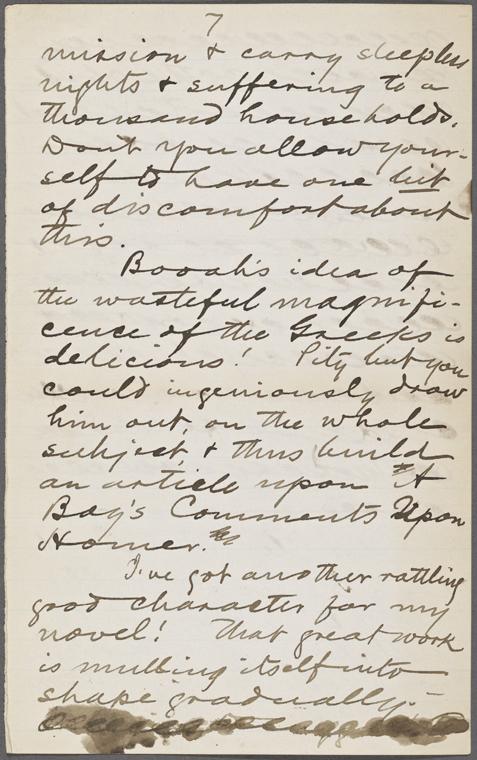 7
mission & carry sleepless
nights & suffering to a
thousand households.
Don't you allow your-
self to have one bit
of discomfort about
this.
Booah's idea of
the wasteful magnifi-
cence of the Greeks is
delicious! Pity but you
could ingeniously draw
him out, on the whole
subject, & thus build
an article upon "A
Boy's Comments Upon
Homer."
I've got another rattling
good character for my
novel! That great work
is mulling itself into
shape gradually.